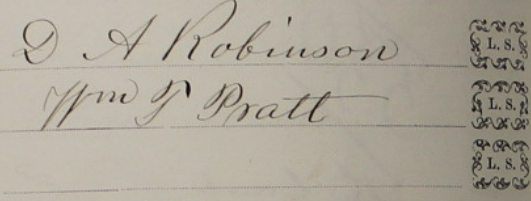 D A Robinson L. S.
Wm T Pratt L. S.
L. S.